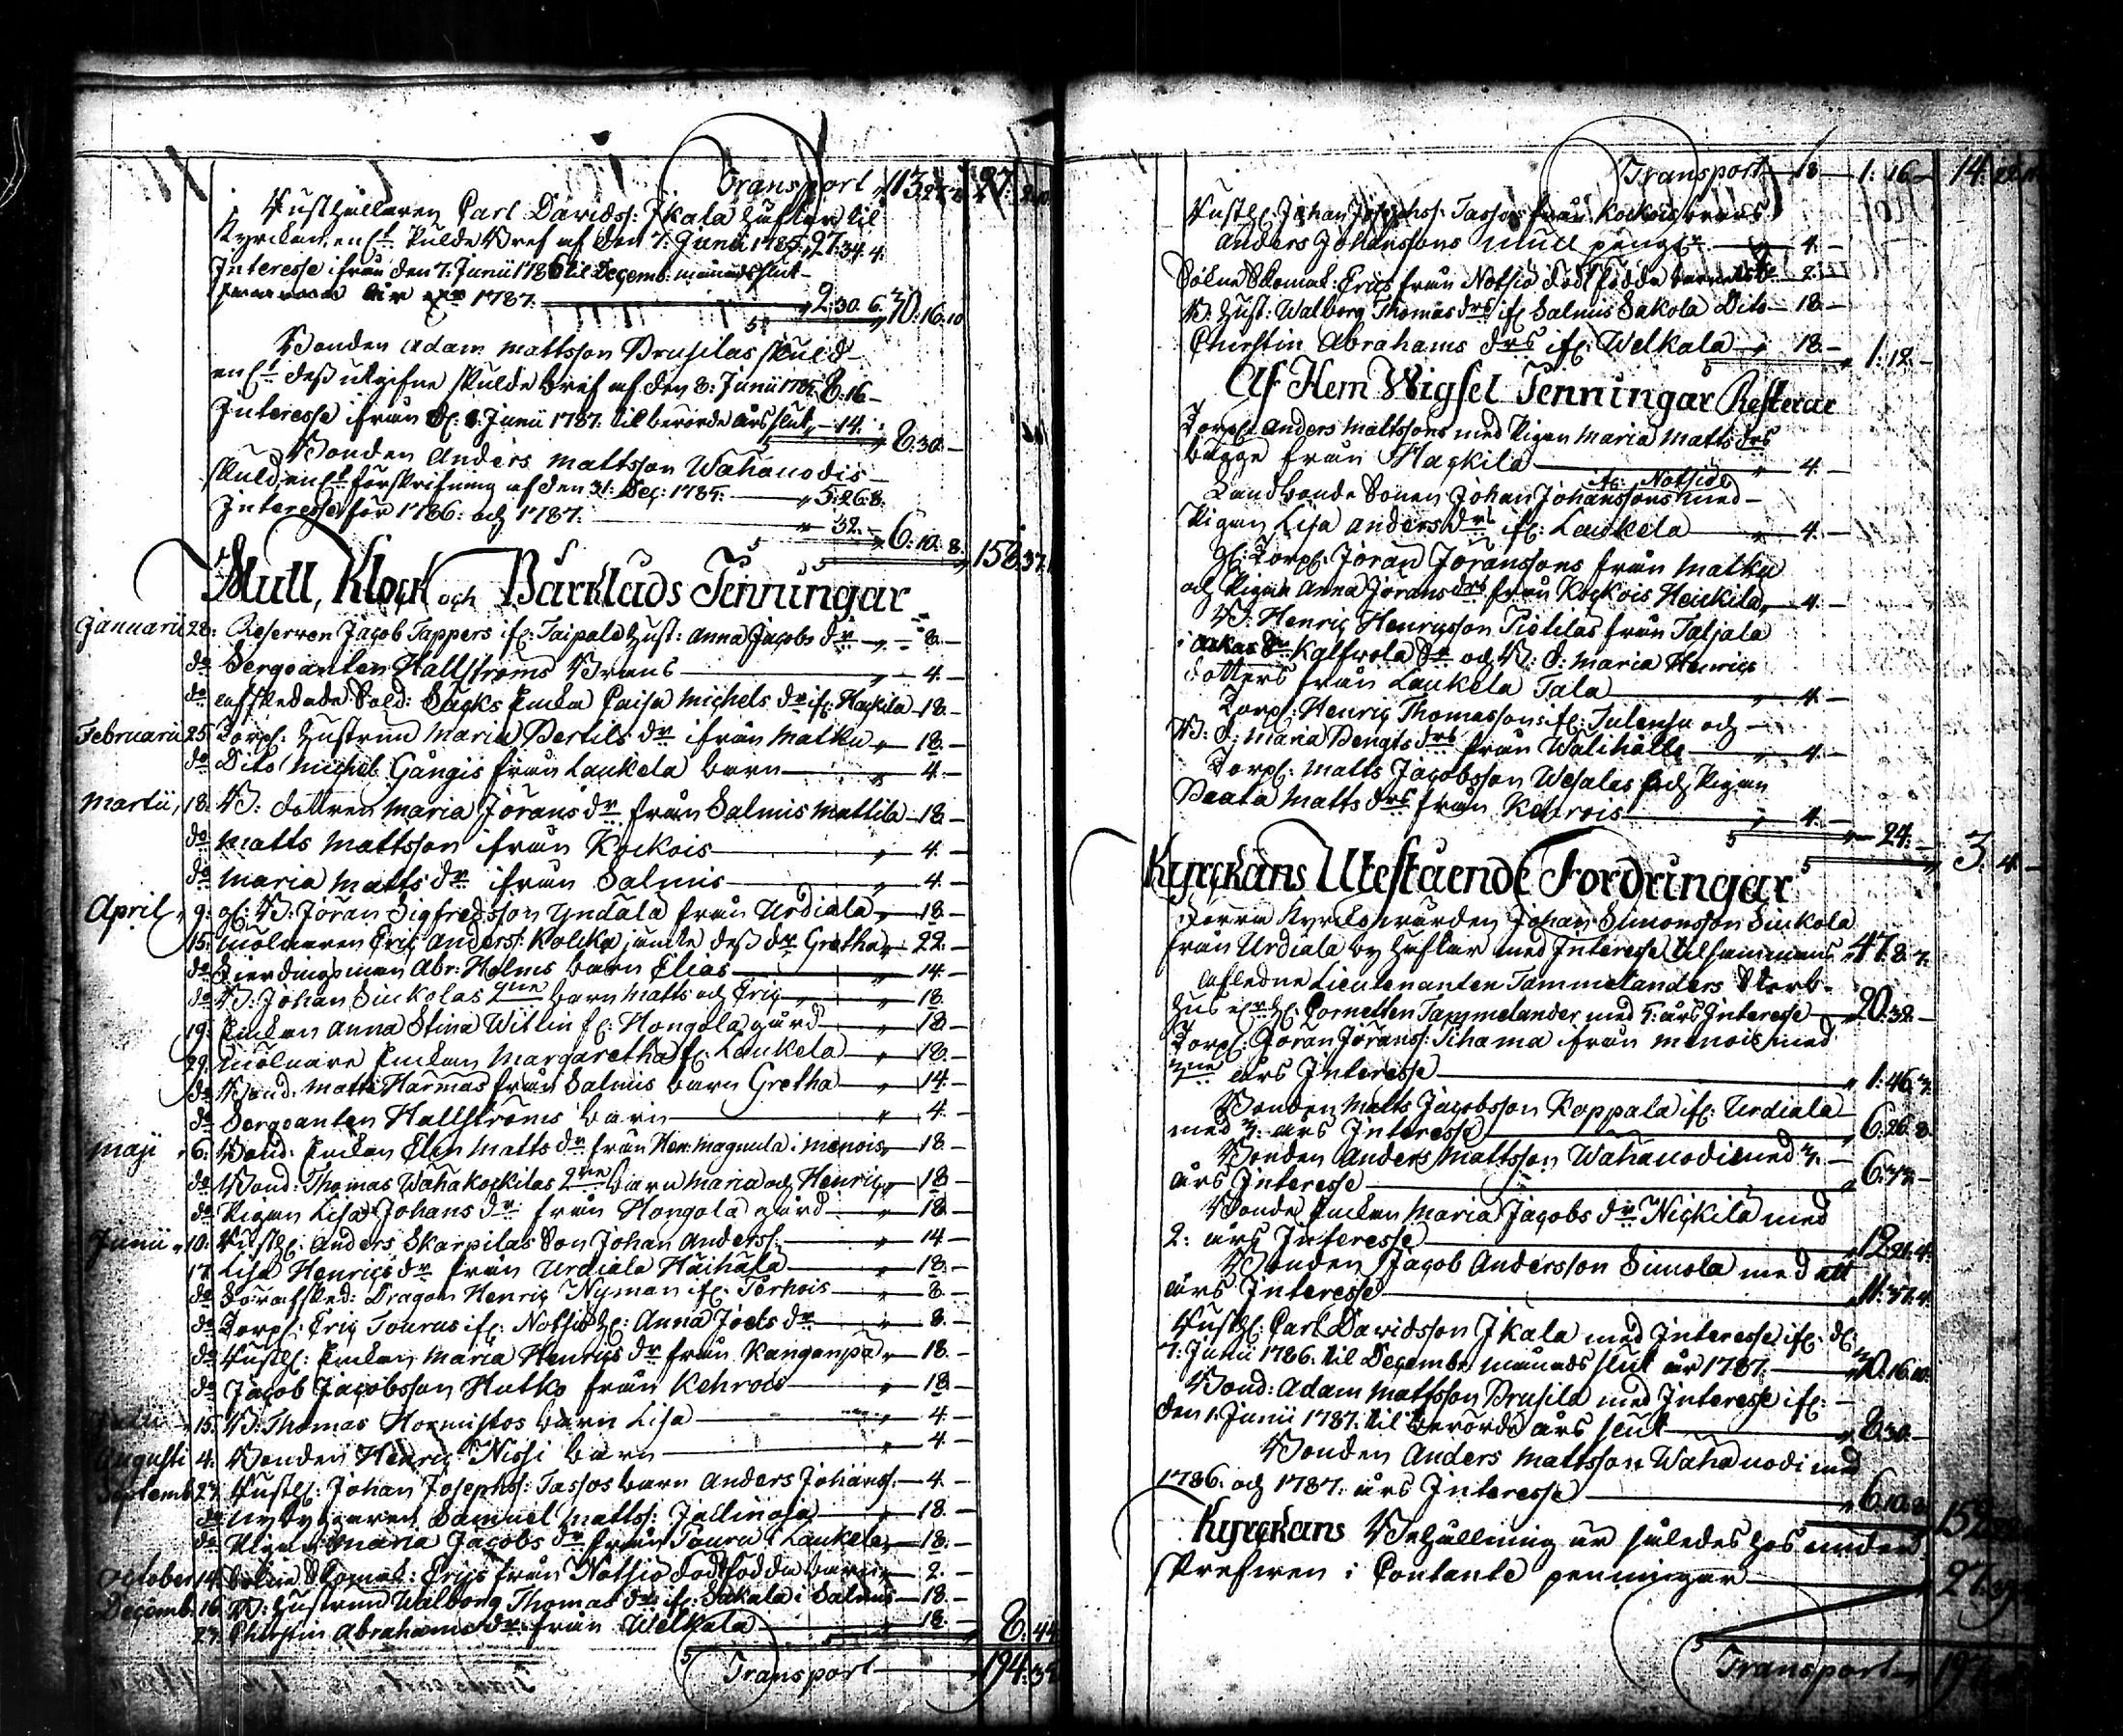 Transport 113. 27.
Rusthållaren Carl Davidss: Ikala häftar til
Kyrckan, enl:t skulde Bref af den 7: Junii 1785. 27. 34. 4.
Interesse ifrån den 7. Junii 1786 til Decemb: månads slut
år 1787. 2. 30. 6. 30. 16. 10
Bonden Adam Mattsson Prusilas skuld
enl:t dess utgifne skulde bref af den 8: Junii 8. 16 –
Interesse ifrån d: 1. Junii 1787. til berörde års slut, – 14. 8. 30. –
Bonden Anders Mattsson Wahanodis
skuld, enl:t förskrifning af den 31: Dec: 1785. 5. 26. 8.
Interesse för 1786. och 1787. 32. – 6. 10. 8. 158. 37.
Mull, Klock och Bårkläds Penningar
Januarii 28. Reserven Jacob Tappers if: Taipale Hust: Anna Jacobs dr – 8. –
do Sergeanten Hallströms Barns – 4. –
do afskedade Sold: Sacks Enka Caisa Michels dr if: Hackila – 18. –
Februarii 25. Torp: Hustrun Maria Bertils dr ifrån Matku – 18. –
do Dito Michel Gångis från Laukela barn – 4. –
Martii, 18. B: dottren Maria Jörans dr från Salmis Mattila – 18. –
do Matts Mattsson ifrån Kockois – 4. –
do Maria Matts dr ifrån Salmis – 4. –
April, 9. gl: B: Jöran Sigfredsson Yndälä från Urdiala – 18. –
15. Mölnaren Eric Anderss: Kolcka jämte dess dr Gretha – 22. –
do Fierdingsman Abr: Holms barn Elias – 14. –
do B: Johan Sinkolas 2ne barn Matts och Eric – 18.
19. Enkan Anna Stina Witlin f: Hongola gård – 18 –
29. Mölnare Enkan Margaretha f: Laukela – 18. –
do Bond. Matts Härmäs från Salmis barn Gretha – 14. –
do Sergeanten Hallströms barn – 4. –
Maji 6. Bond: Enkan Elin Matts dr från Heu Magnula i Menois – 18. –
do Bond: Thomas Wähäkockilas 2ne barn Maria och Henric – 18 –
do Pigan Lisa Johans dr från Hongola gård – 18. –
Junii 10. Rusth: Anders Skarpilas Son Johan Anderss: – 14 –
17. Lisa Henrics dr från Urdiala Häihälä – 18. –
do Förafsked: Dragon Henric Nyman if: Perhois – 8. –
do Torp: Eric Tourus if: Notsiö H: Anna Joels dr – 8. –
do Rusth: Enkan Maria Henrics dr från Kanganpä – 18. –
do Jacob Jacobsson Hutko från Kehrois – 18 –
15. B: Thomas Hormistos barn Lisa – 4. –
Augusti 4. Bonden Henric Nissi barn – 4. –
Septemb 23. Rusth: Johan Josephs: Tassos barn Anders Johanss: – 4. –
do Nybyggaren Samuel Matts: Jällinoja – 18. –
do Pigan Maria Jacobs dr från Tauru i Laukela – 18. –
October 14. Skomak: Erics från Notsiö dödfödda barn – 2. –
Decemb. 16. B: Hustrun Walborg Thomas dr if: Sakala i Salmis – 18. –
23. Christin Abrahams dr från Welkala – 18 – 8. 44
Transport 194. 32
Transport 18 – 1. 16 – 14.
Rusth: Johan Josephss: Tassos från Kockois barns
Anders Johanssons mull pengr 4. –
Skomak: Erics från Notsiö dödfödda barns do 2. –
B: Hust: Walborg Thomas drs if: Salmis Sakola Dito – 18. –
Christin Abrahams drs if: Welkala – 18. – 1. 12. –
Af Hem Wigsel Penningar Resterar
Torp: Anders Mattssons med Pigan Maria Matts drs
bägge från Hackila – 4. –
Landbonde Sonen Johan Johanssons med – fr: Notsiö
Pigan Lisa Anders drs if: Laukela – 4. –
gl: Torp: Jöran Jöranssons från Matku
och Pigan Anna Jörans drs från Kockois Heickilä – 4. –
B: Henric Henricsson Pietilas från Tatjala
och B: d: Maria Henrics
dotters från Laukela Tala – 4. –
Torp: Henric Thomassons if: Julensu och –
B: d: Maria Bengts drs från Walihalle – 4. –
Torp: Matts Jacobsson Wesalas och Pigan
Beata Matts drs från Kehrois – 4. –
24. – 3. 4. –
Kyrckans Utestående Fordringar
Förra Kyrckowärden Johan Simonsson Sinkola
från Urdiala by häftar med Interesse tilsammans 47. 8. 7.
Aflidne Lieutenanten Tammelanders Sterb-
hus Cornetten Tammelander med 5. års Interesse – 20. 32. –
Torp: Jöran Jöranss: Tihama ifrån Menois med
3ne års Interesse 1. 46. 7.
Bonden Matts Jacobsson Koppala if: Urdiala
med 3. års Interesse 6. 26. 8
Bonden Anders Mattsson Wahanodi med 3. –
års Interesse 6. 33. –
Bonde Enkan Maria Jacobs dr Nickilä med
2. års Interesse 12. 21. 4.
Bonden Jacob Andersson Simola med ett
års Interesse 11. 37. 4.
Rusth: Carl Davidsson Ikala med Interesse if: d:
7. Junii 1786. til Decembr månads slut år 1787. 30. 16. 10.
Bond: Adam Mattsson Prusila med Interesse if: –
den 1. Junii 1787. til berörde års slut 8. 30. –
Bonden Anders Mattsson Wahanodi med
1786. och 1787. års Interesse 6. 10. 8. 158.
Kyrckans Behållning är således hos under-
skrefwen i Contante penningar 27.
Transport 197.